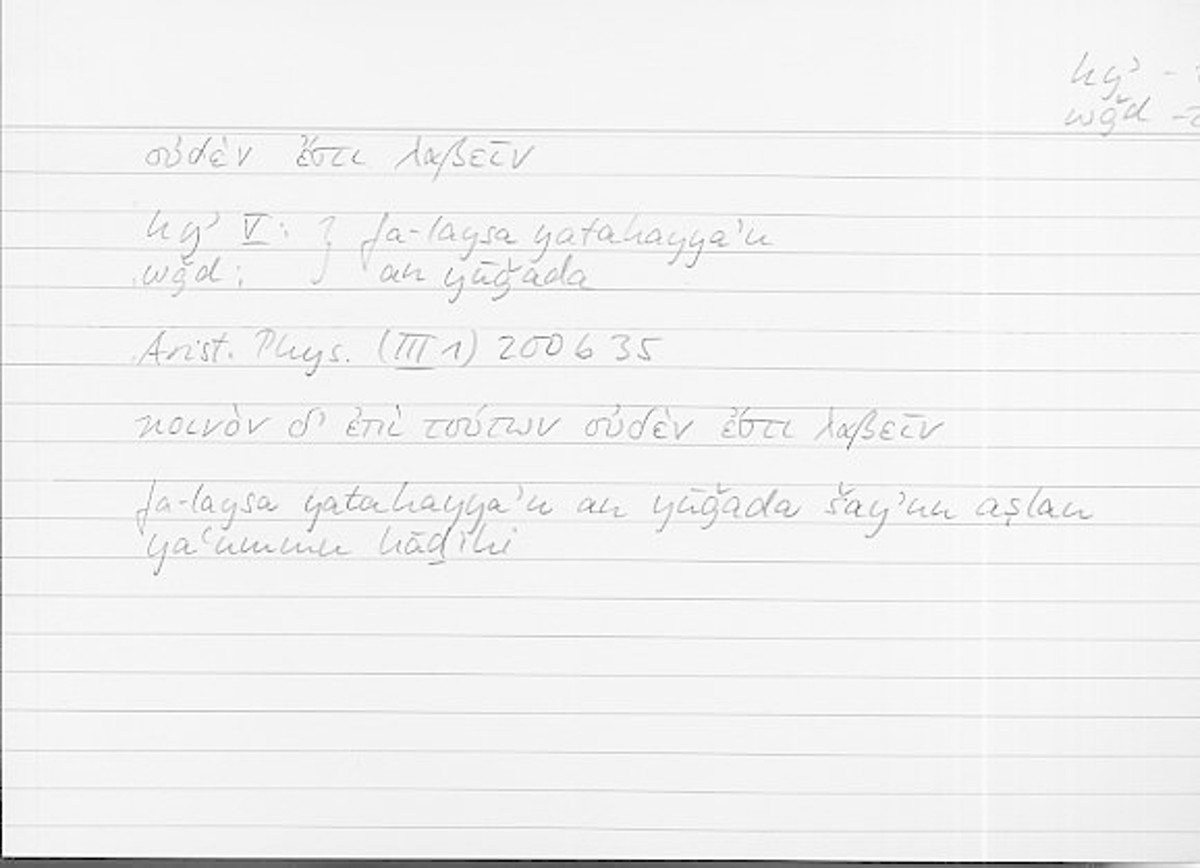 hyʾ -
wǧd -
οὐδέν ἔστι λαβεῖν
hyʾ V: } fa-laysa yatahayyaʾu
wǧd: } an yūǧada
Arist. Phys. (III 1) 200 b 35
κοινὸν δ' ἐπὶ τούτων οὐδέν ἔστι λαβεῖν
fa-laysa yatahayyaʾu an yūǧada šayʾun aṣlan
yaʿummu hāḏihi